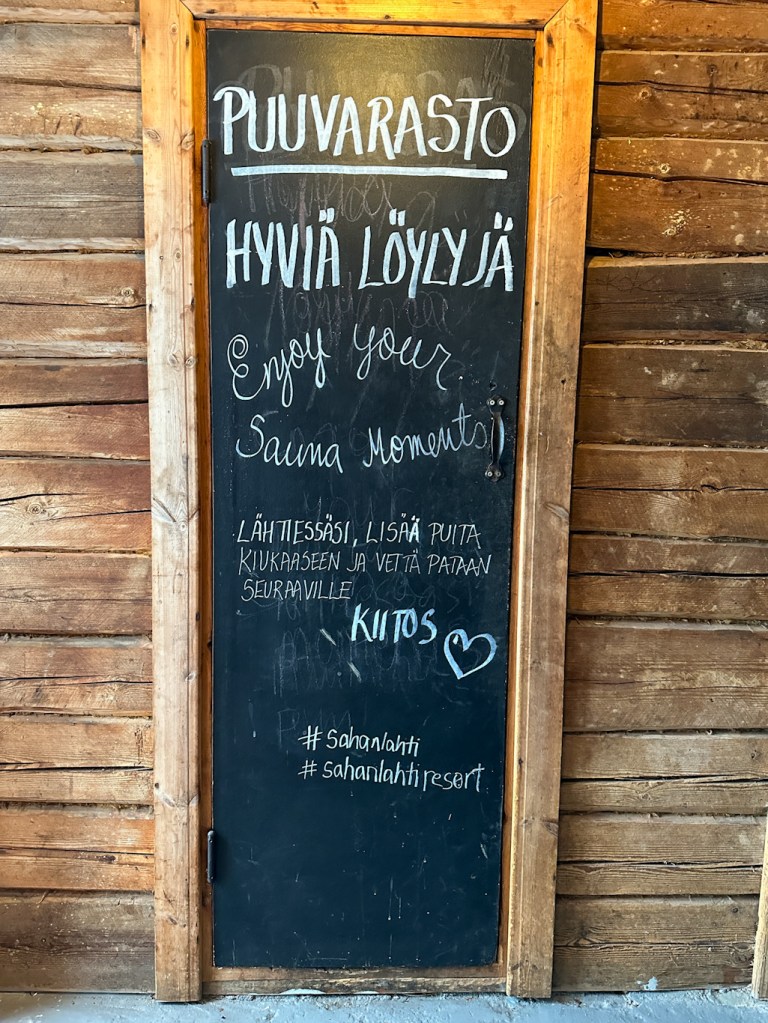 PUUVARASTO
HYVIÄ LÖYLYJÄ
Enjoy your
Sauna Moments
LÄHTIESSÄSI, LISÄÄ PUITA
KIUKAASEEN JA VETTÄ PATAAN
SEURAAVILLE
KIITOS
#sahanlahti
#sahanlahtiresort